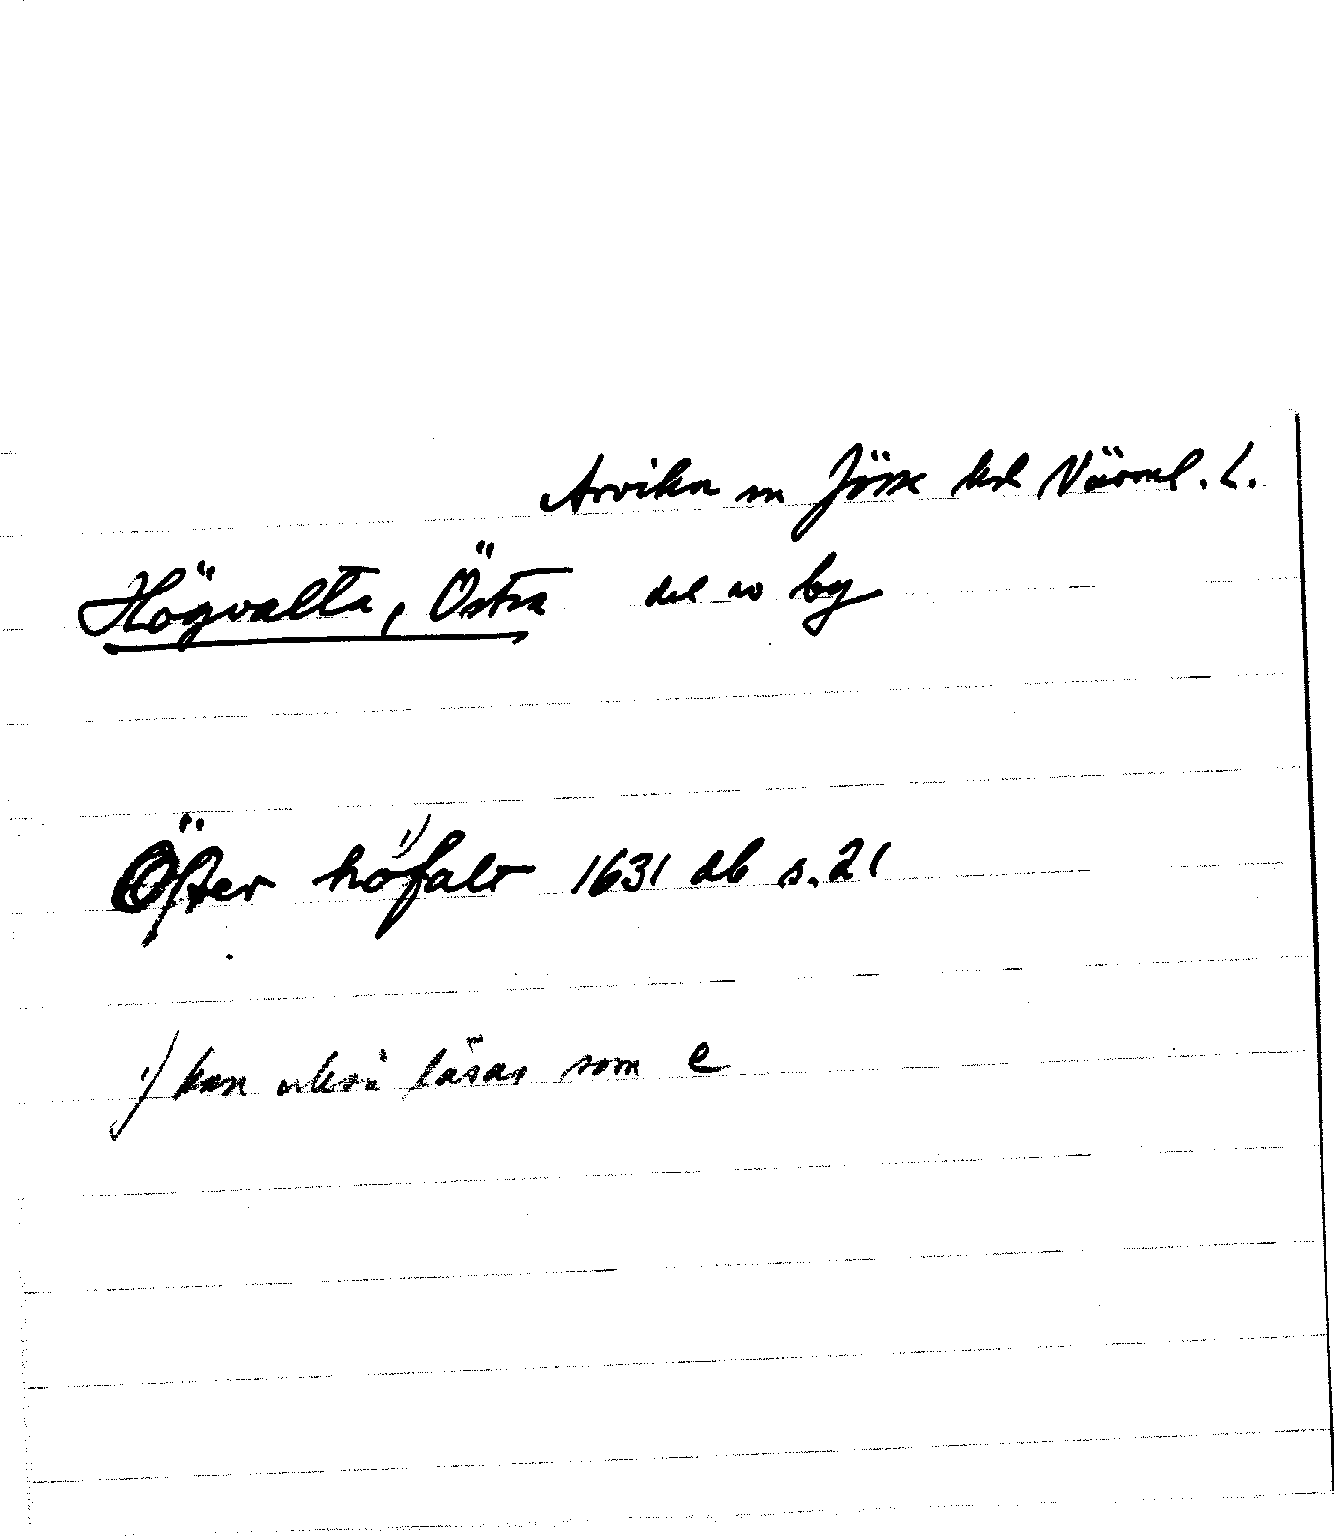 Arvika sn Jösse hd Värml. L.
Högvalta, Östra del av by
Öster höfalt 1) 1631 db s. 21
1) kan också läsas som e